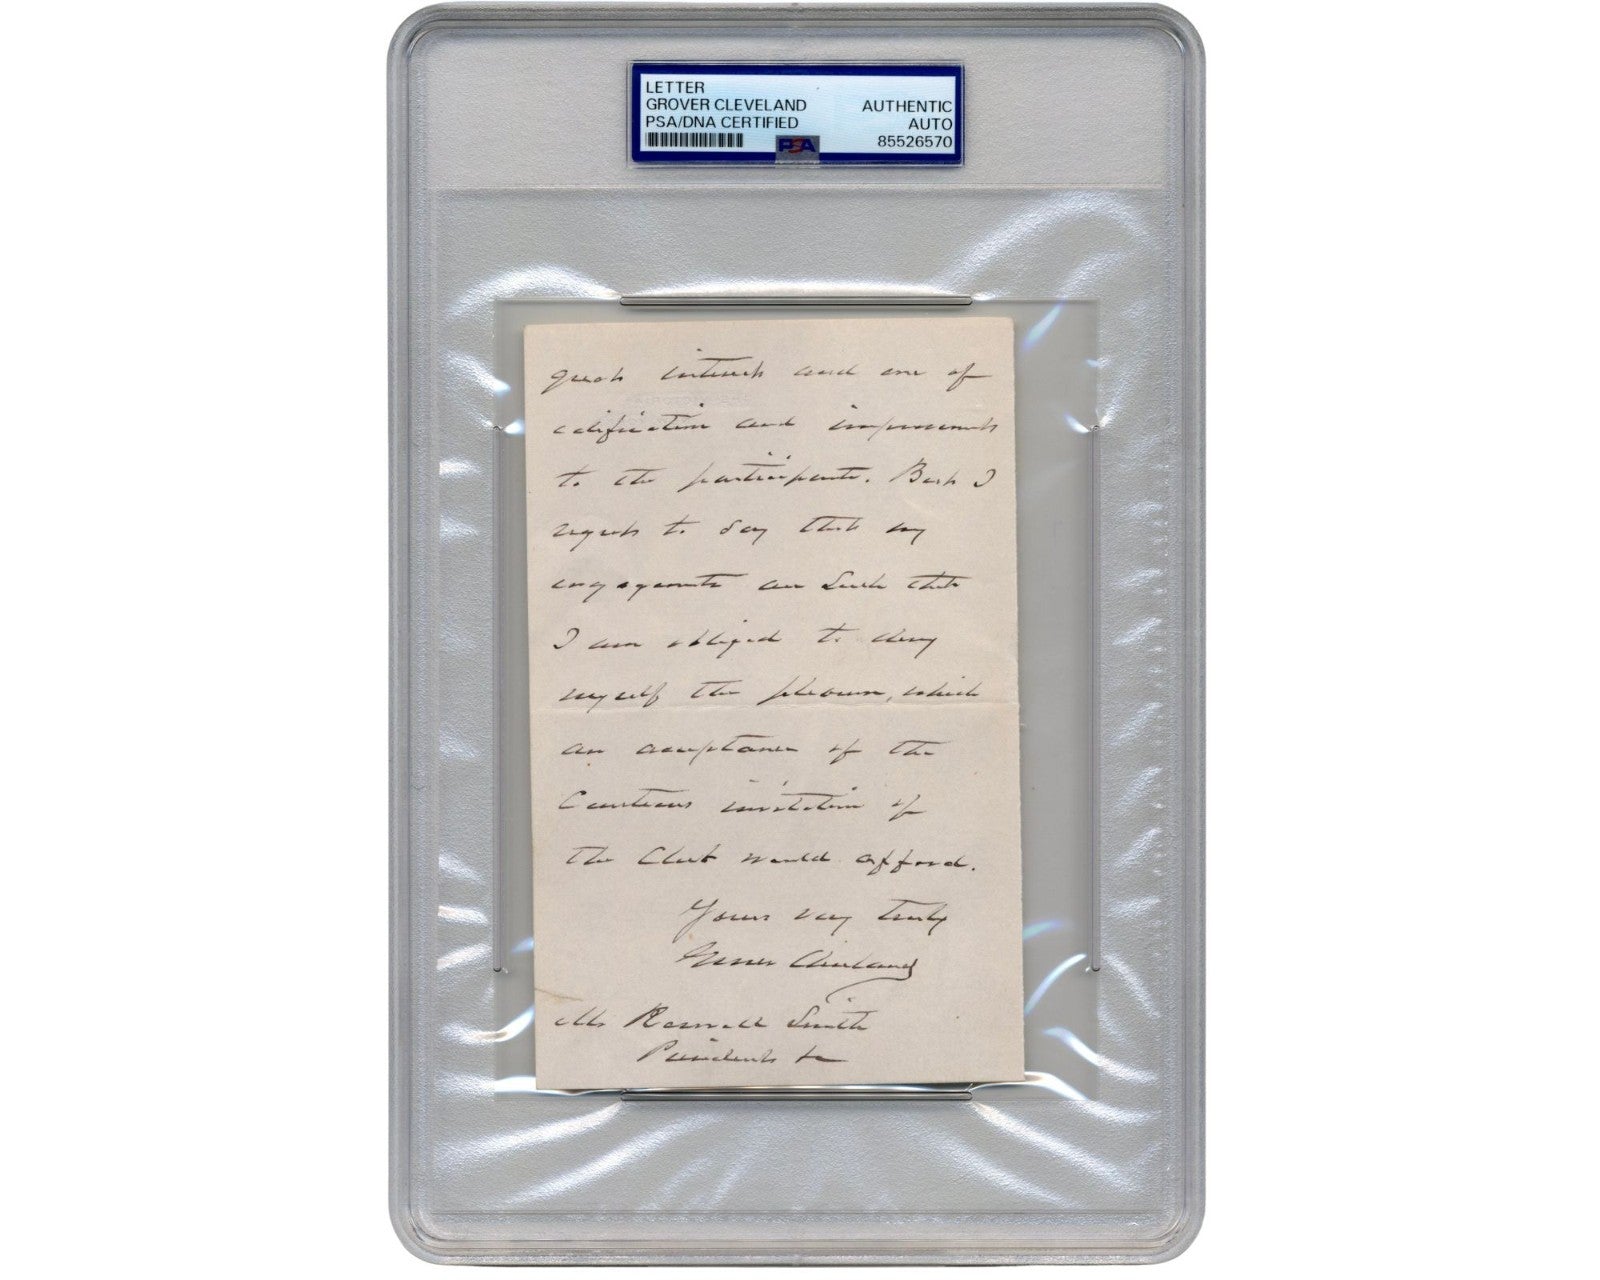 LETTER
GROVER CLEVELAND
PSA/DNA CERTIFIED
AUTHENTIC
AUTO
85526570
PSA
great interest and one of
edification and improvement
to the participants. But I
regret to say that my
engagements are such that
I am obliged to deny
myself the pleasure, which
an acceptance of the
Courteous invitation of
the Club would afford.
Yours very truly
Grover Cleveland
Mr Roswell Smith
President &c